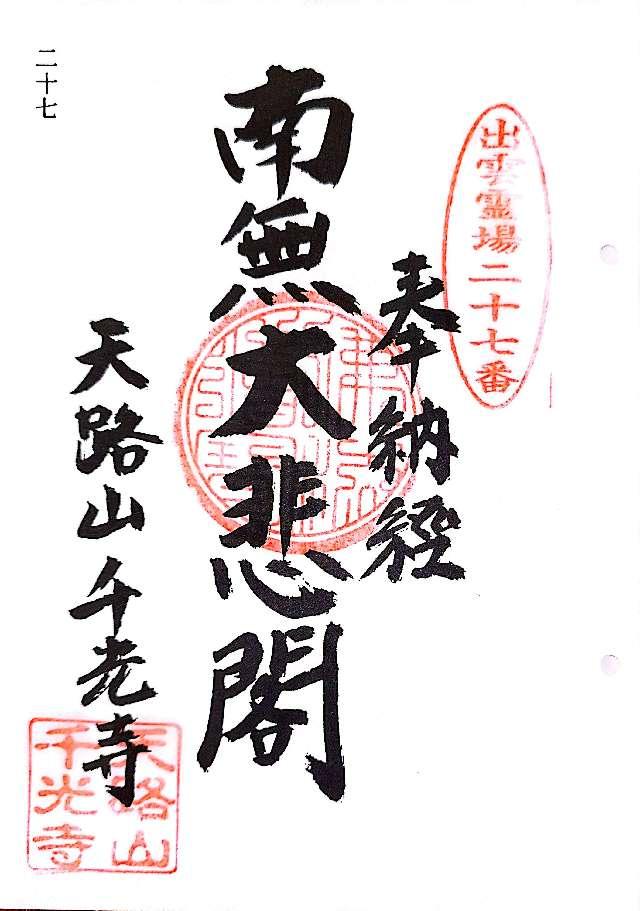 出雲霊場二十七番
奉納経
南無大悲閣
天路山千光寺
天路山
千光寺
二十七